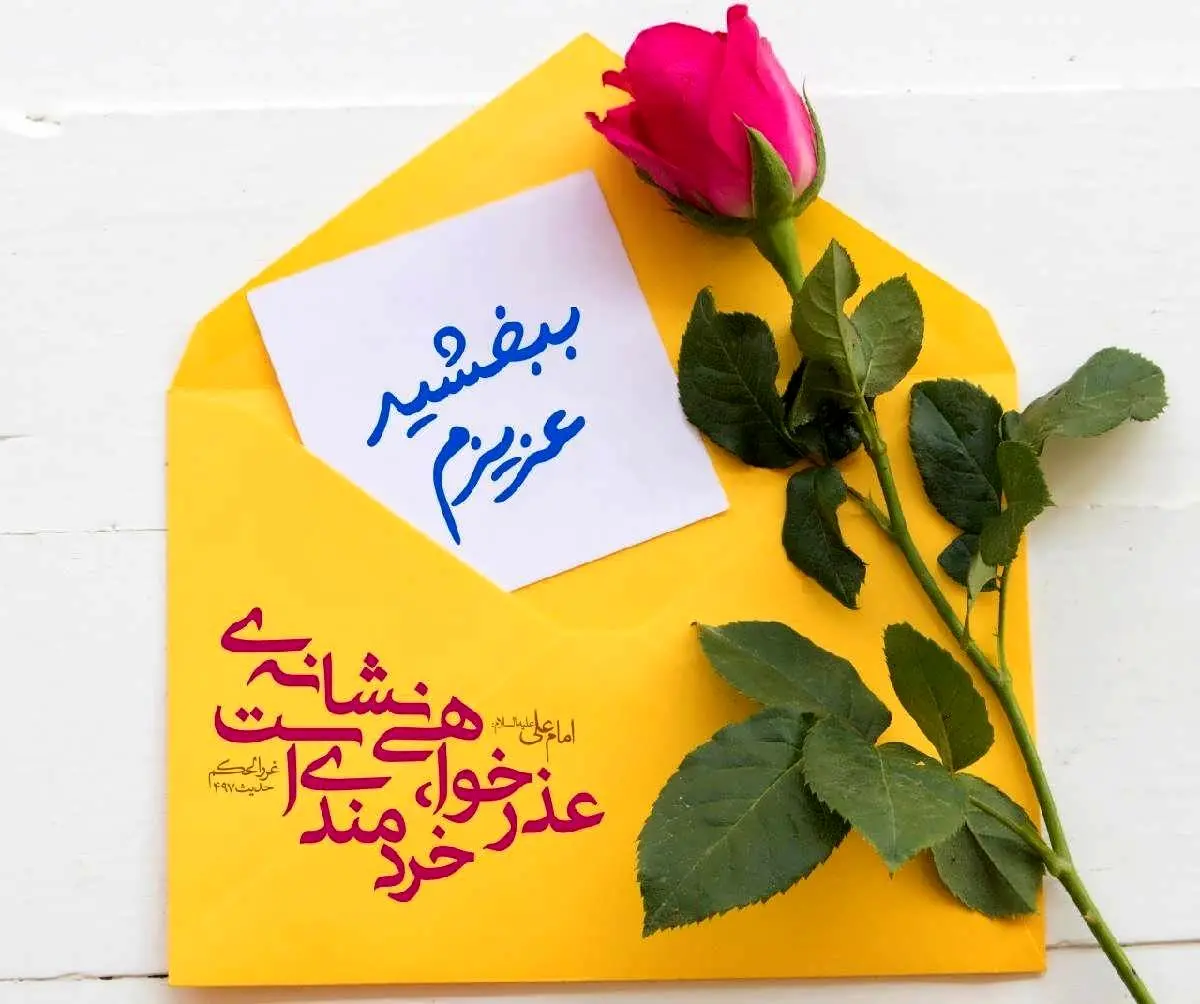 ببخشید
عزیزم
امام علی علیه‌السلام:
عذرخواهی، نشانه‌ی
خردمندی است
غررالحکم
حدیث ۴۹۷